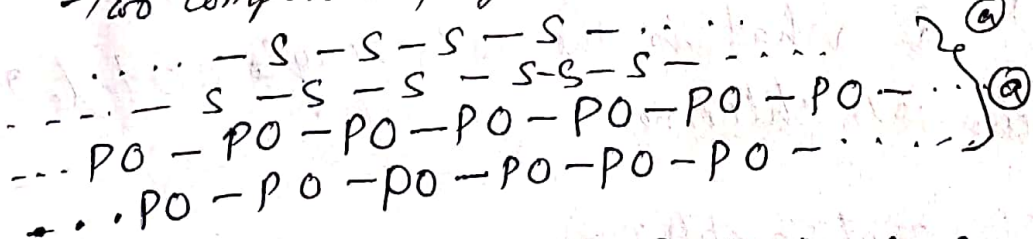 .... — S — S — S — S — ......
- - - . — S — S — S — S-S-S — .....
--- PO — PO — PO — PO — PO — PO — PO — ...
... PO — PO — PO — PO — PO — PO — .....
a
a